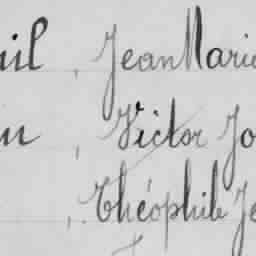 il, Jean Marie
, Victor Jo
, Théophile Je